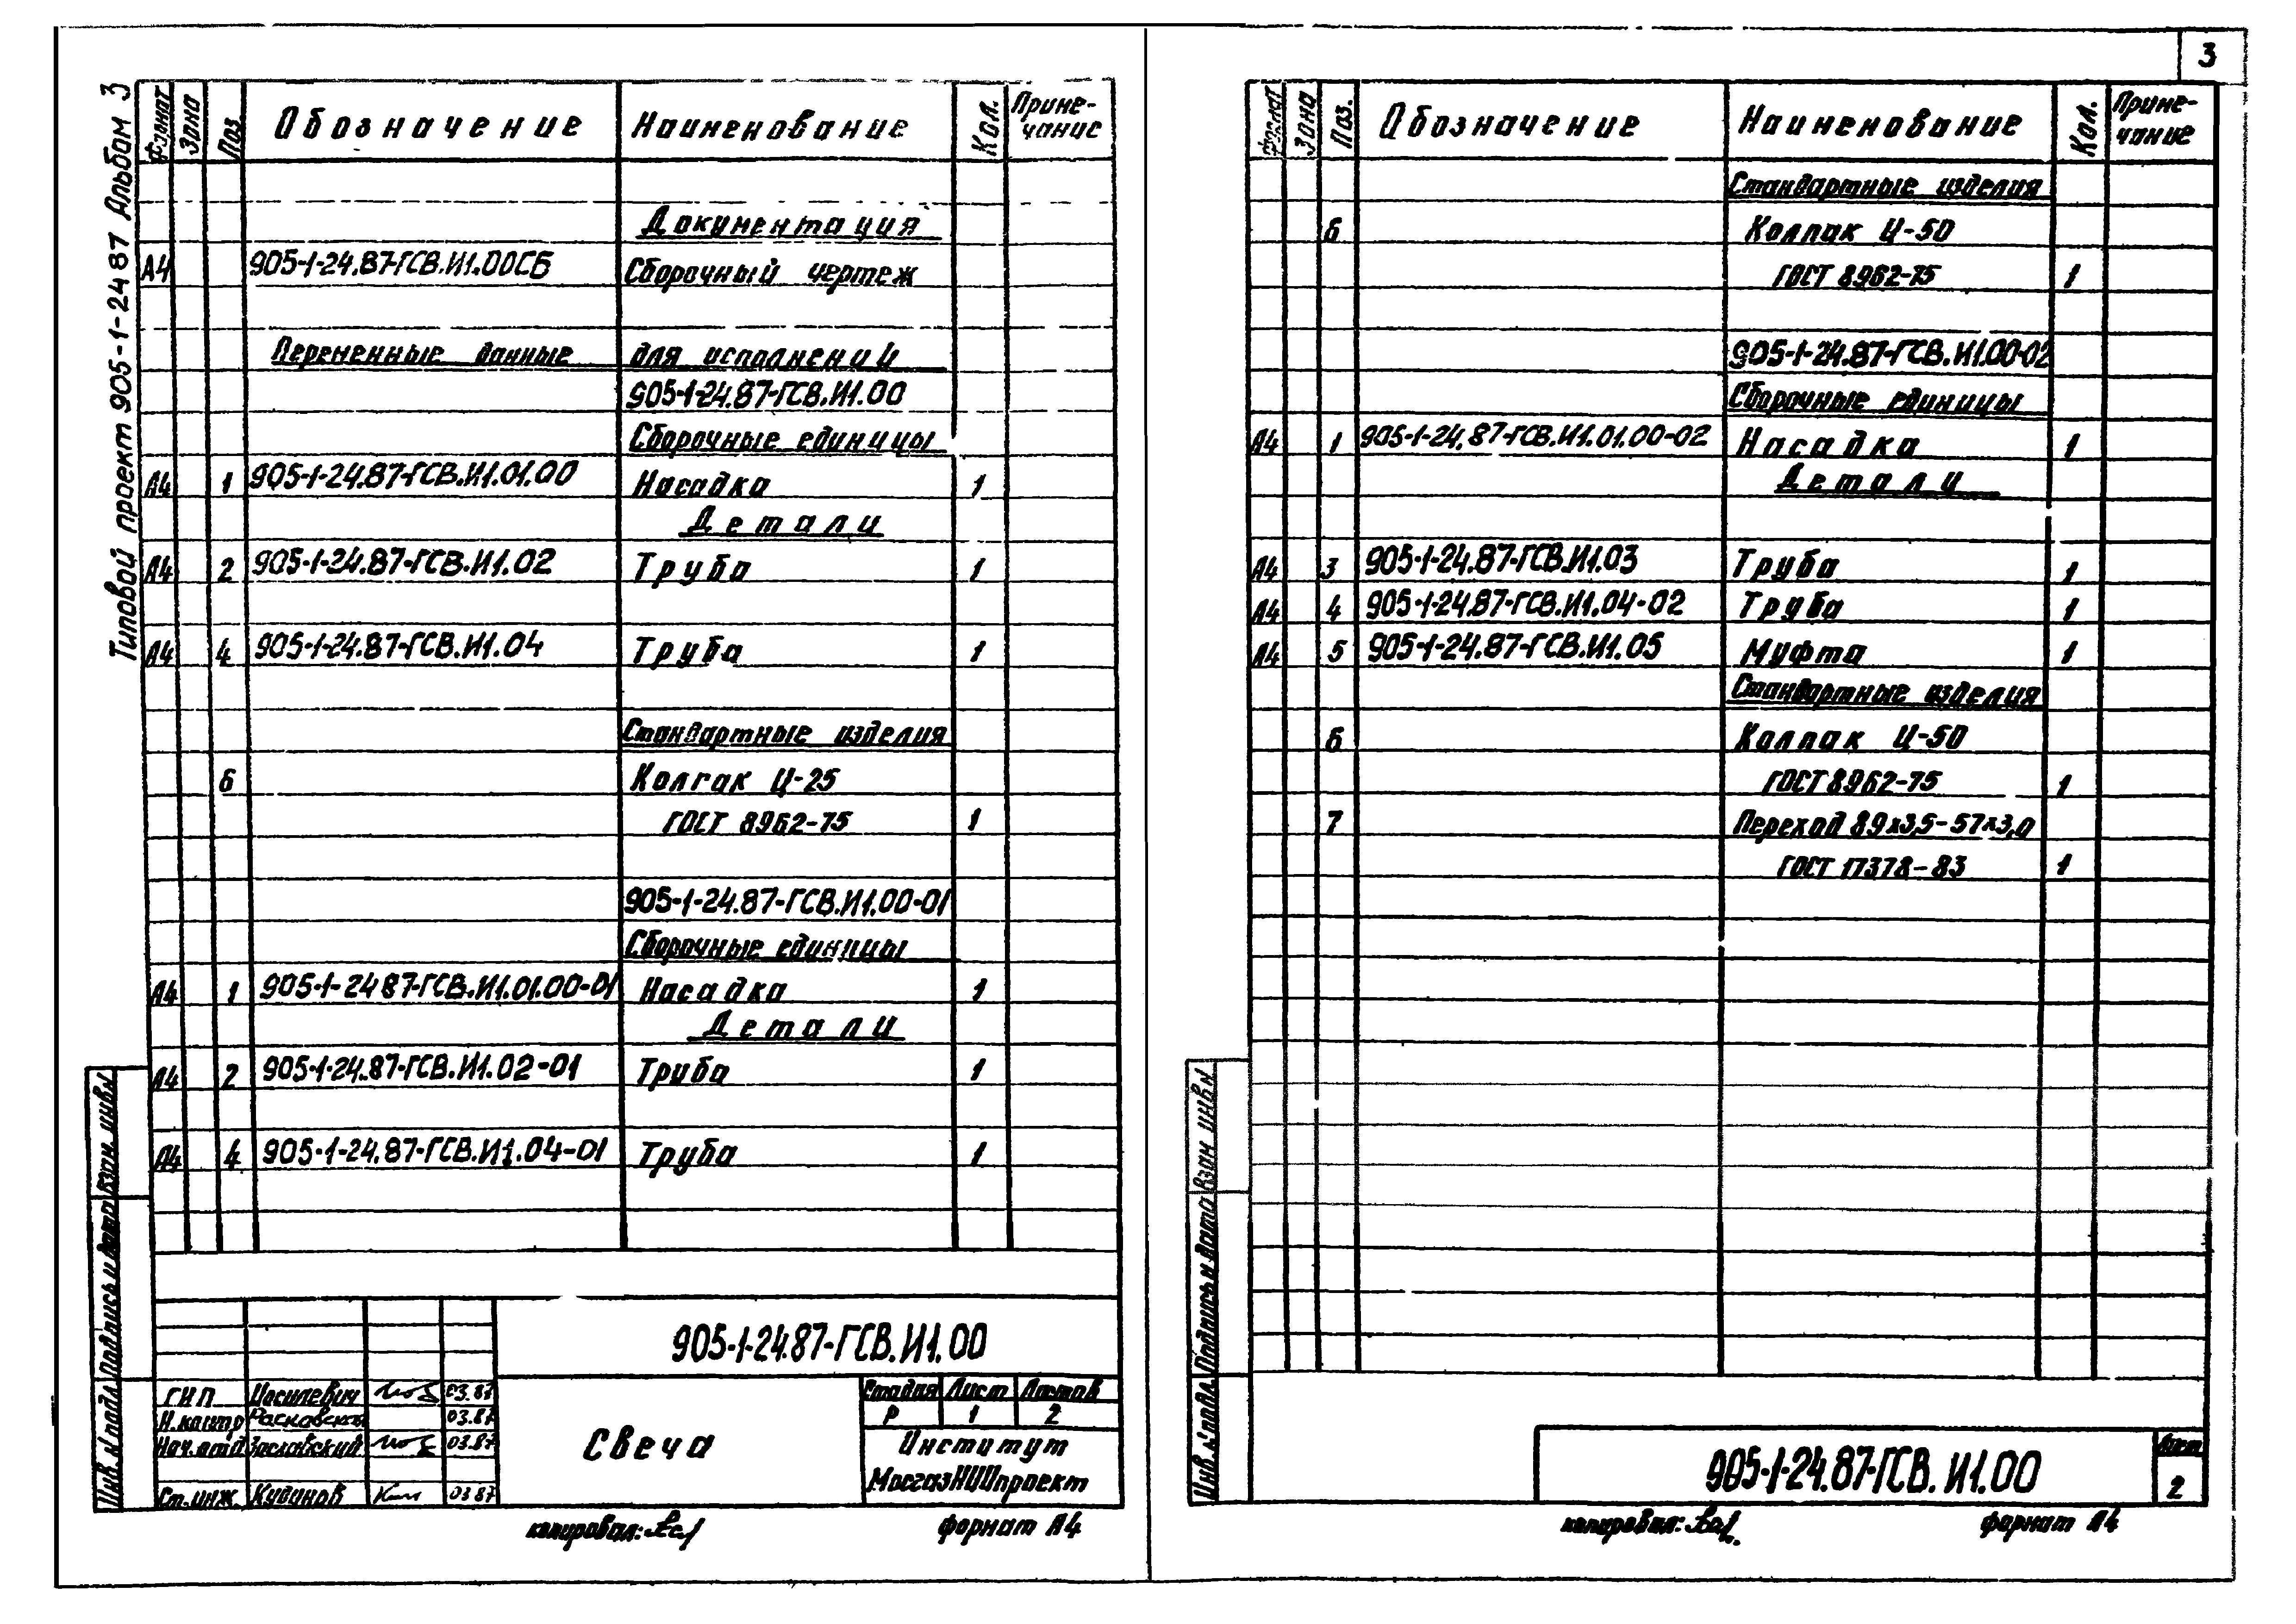 3
Типовой проект 905-1-24 87 Альбом 3
Формат Зона Поз. Обозначение Наименование Кол. Приме-
чание
Документация
А4 905-1-24.87-ГСВ.И1.00СБ Сборочный чертеж
Переменные данные для исполнений
905-1-24.87-ГСВ.И1.00
Сборочные единицы
А4 1 905-1-24.87-ГСВ.И1.01.00 Насадка 1
Детали
А4 2 905-1-24.87-ГСВ.И1.02 Труба 1
А4 4 905-1-24.87-ГСВ.И1.04 Труба 1
Стандартные изделия
6 Колпак Ц-25
ГОСТ 8962-75 1
905-1-24.87-ГСВ.И1.00-01
Сборочные единицы
А4 1 905-1-24 87-ГСВ.И1.01.00-01 Насадка 1
Детали
А4 2 905-1-24.87-ГСВ.И1.02-01 Труба 1
А4 4 905-1-24.87-ГСВ.И1.04-01 Труба 1
Инв. № подл Подпись и дата Взам. инв №
905-1-24.87-ГСВ.И1.00
ГИП 03.87
Н.контр 03.87
Нач.отд Заславский 03.87
Ст.инж Кудинов 03 87
Свеча
Стадия Лист Листов
Р 1 2
Институт
МосгазНИИпроект
копировал: формат А4
Формат Зона Поз. Обозначение Наименование Кол. Приме-
чание
Стандартные изделия
6 Колпак Ц-50
ГОСТ 8962-75 1
905-1-24.87-ГСВ.И1.00-02
Сборочные единицы
А4 1 905-1-24.87-ГСВ.И1.01.00-02 Насадка 1
Детали
А4 3 905-1-24.87-ГСВ.И1.03 Труба 1
А4 4 905-1-24.87-ГСВ.И1.04-02 Труба 1
А4 5 905-1-24.87-ГСВ.И1.05 Муфта 1
Стандартные изделия
6 Колпак Ц-50
ГОСТ 8962-75 1
7 Переход 89х3,5-57х3,0
ГОСТ 17378-83 1
Инв. № подл Подпись и дата Взам инв №
905-1-24.87-ГСВ.И1.00
Лист
2
копировал: формат А4